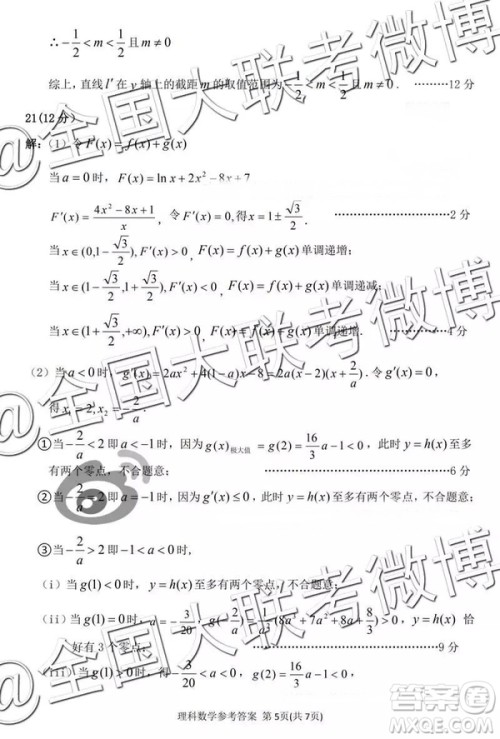 ∴ -1/2 < m < 1/2 且 m ≠ 0
综上，直线 l′ 在 y 轴上的截距 m 的取值范围为 -1/2 < m < 1/2 且 m ≠ 0 . ………12分
21(12分)
解:（1）令 F(x)=f(x)+g(x)
当 a=0 时， F(x)=ln x+2x²-8x+7
F′(x)=(4x²-8x+1)/x ，令 F′(x)=0,得 x=1±√3/2 ……………2分
当 x∈(0,1-√3/2),F′(x)>0 ，F(x)=f(x)+g(x)单调递增;
当 x∈(1-√3/2,1+√3/2),F′(x)<0 ，F(x)=f(x)+g(x)单调递减;
当 x∈(1+√3/2,+∞),F′(x)>0 ，F(x)=f(x)+g(x)单调递增. 4分
（2）当 a<0 时， g′(x)=2ax²+4(1-a)x-8=2a(x-2)(x+2/a) .令 g′(x)=0，
得 x₁=2,x₂=-2/a
①当-2/a<2 即 a<-1时，因为 g(x)极大值 =g(2)=16/3 a-1<0，此时 y=h(x) 至多
有两个零点，不合题意； ……………6分
②当-2/a=2 即 a=-1时，因为 g′(x)≤0，此时 y=h(x) 至多有两个零点，不合题意；
③当-2/a>2 即-1<a<0 时，
(i) 当 g(1)<0 时， y=h(x)至多有两个零点，不合题意；
(ii) 当 g(1)=0 时， a=-3/20，g(-2/a)=1/a²(8a³+7a²+8a+8/3)>0 恰
好有3个零点； 9分
(iii) 当 g(1)>0 时，-3/20<a<0，g(2)=16/3 a-1<0，
理科数学参考答案 第5页(共7页)
@全国大联考微博
@全国大联考微博
@全国大联考微博
答案圈